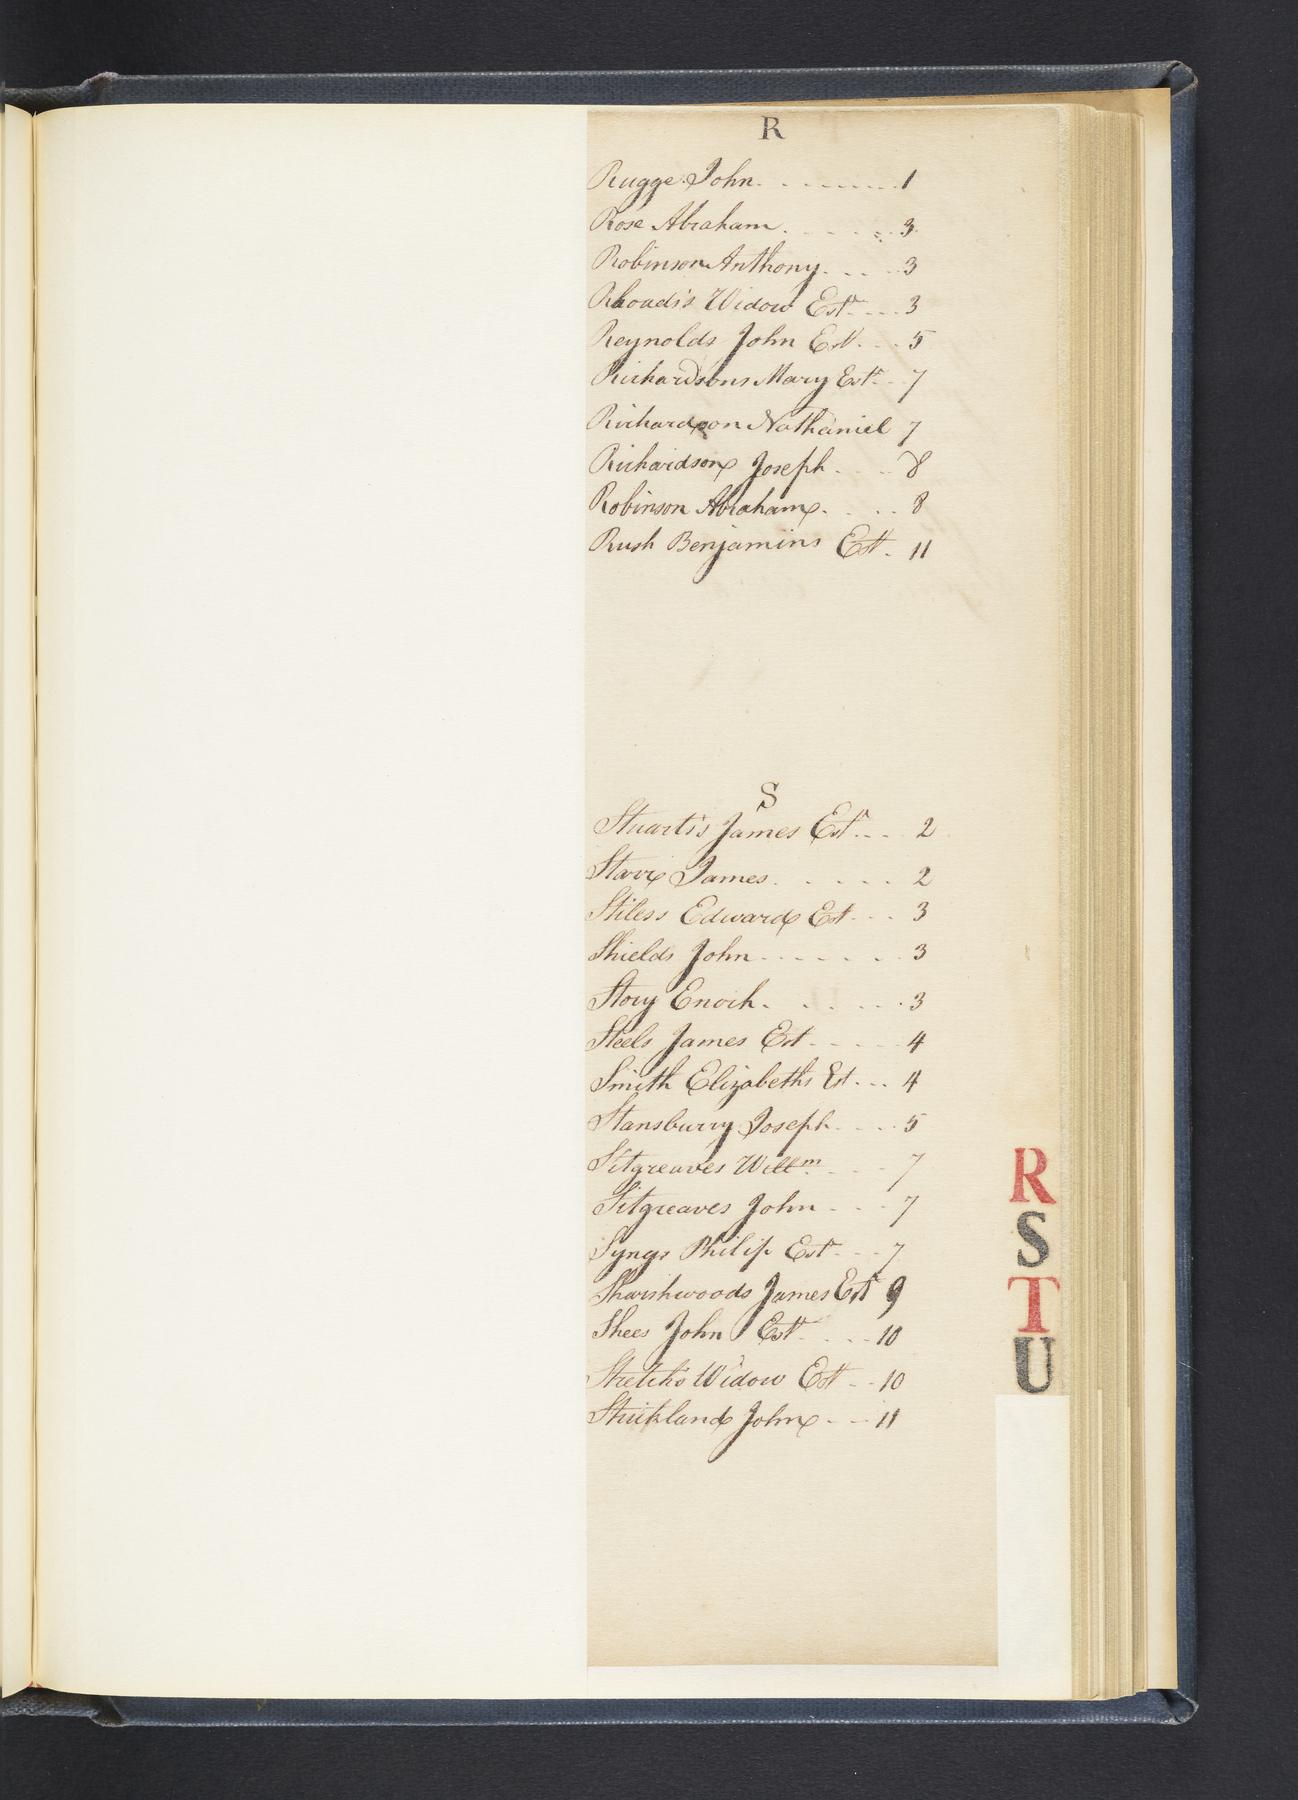 R
Rugge John. 1
Rose Abraham. 3
Robinson Anthony. 3
Rhoads's Widow Estt 3
Reynolds John Estt 5
Richardsons Mary Estt 7
Richardson Nathaniel 7
Richardson Joseph 8
Robinson Abraham. 8
Rush Benjamins Estt 11
S
Stuarts's James Estt 2
Starr James. 2
Stiless Edward Est 3
Shields John 3
Story Enoch. 3
Steels James Est 4
Smith Elizabeths Est 4
Stansburry Joseph 5
Sitgreaves Willm 7
Sitgreaves John 7
Syngs Philip Estt 7
James Estt 9
Shees John Estt 10
Stretch's Widow Estt 10
Strickland John 11
R
S
T
U